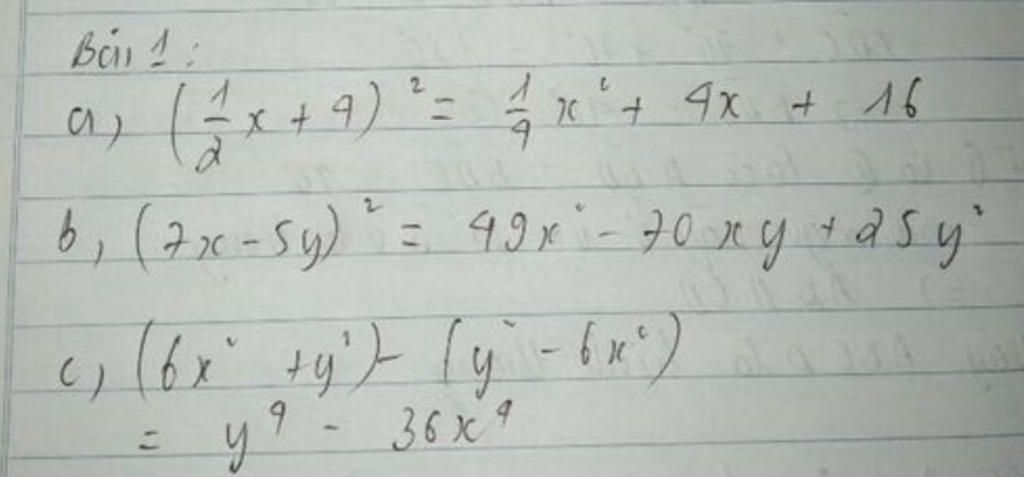 Bài 1:
a, (1/2 x + 4)² = 1/4 x² + 4x + 16
b, (7x - 5y)² = 49x² - 70xy + 25y²
c, (6x² + y²) - (y² - 6x²)
= y⁴ - 36x⁴